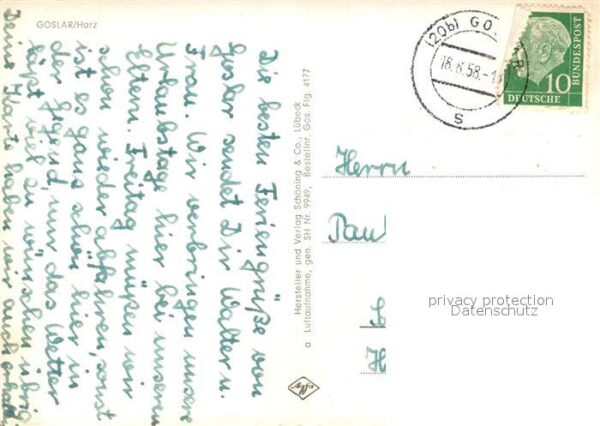 GOSLAR/Harz
Die besten Feriengrüße von
Goslar sendet Dir Walter u.
Frau. Wir verbringen unsere
Urlaubstage hier bei unseren
Eltern Freitag müßen wir
schon wieder abfahren, sonst
ist es ganz schön hier in
der Gegend, nur das Wetter
läßt viel zu wünschen übrig
Deine Karte haben wir auch erhalt.
Hersteller und Verlag Schöning & Co., Lübeck
a Luftaufnahme, gen. SH Nr. 9949, Bestellnr. Gos. Fig. 4177
(20b) GOSLAR
16.8.58.-1
S
10
DEUTSCHE
BUNDESPOST
Herrn
Paul
privacy protection
Datenschutz